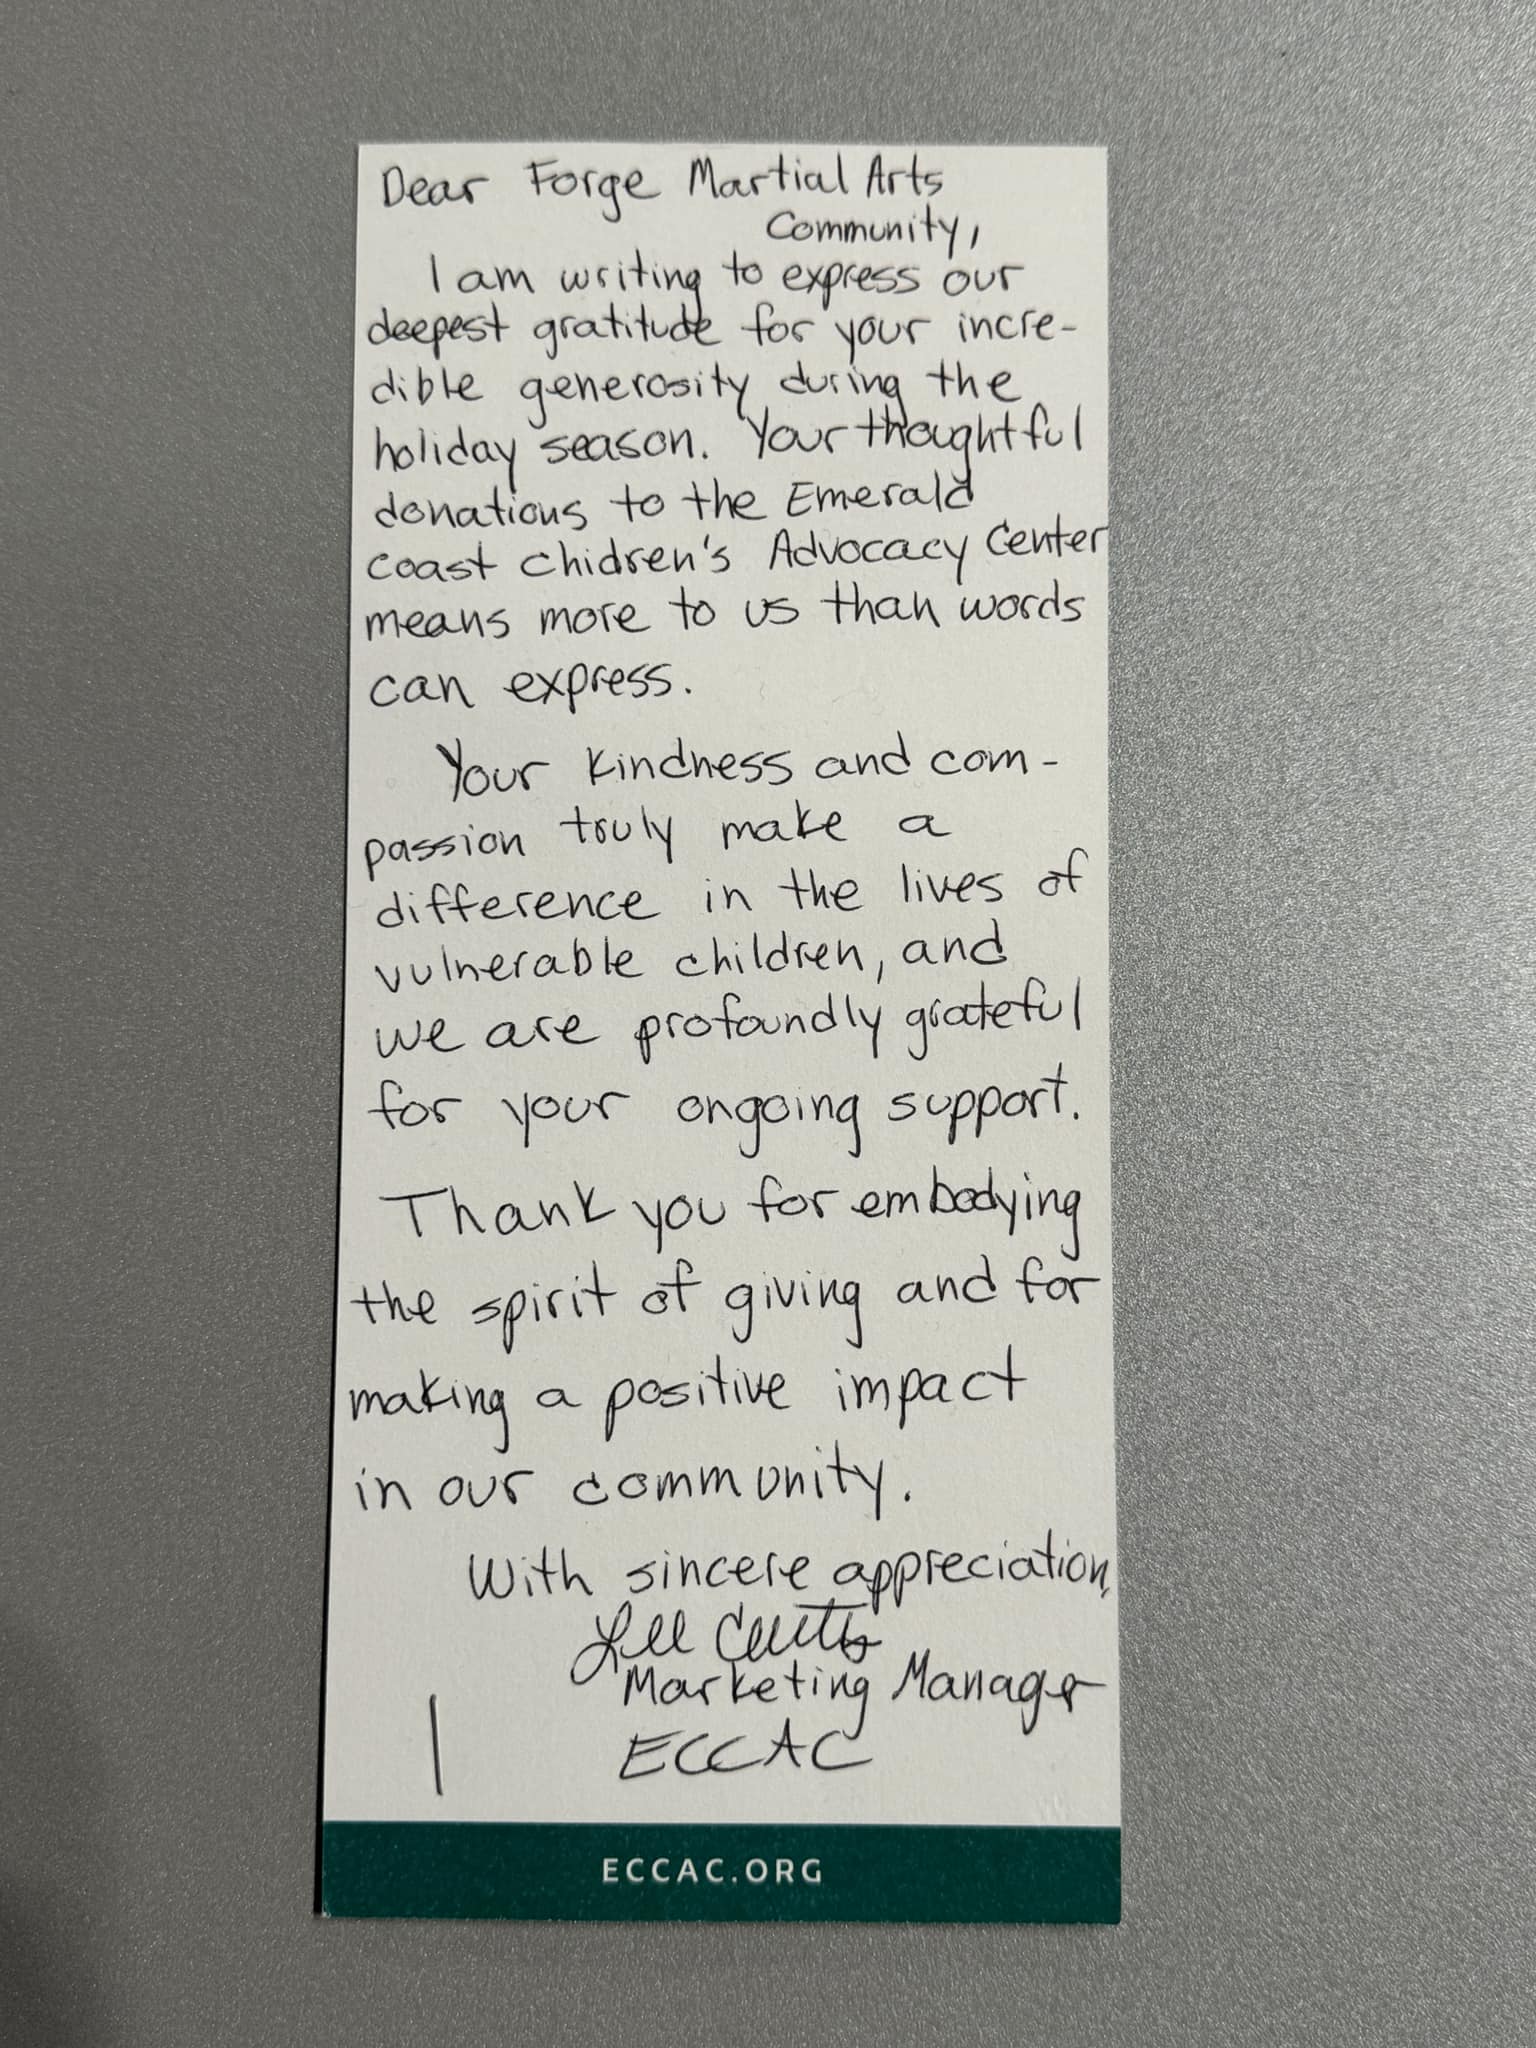 Dear Forge Martial Arts
Community,
I am writing to express our
deepest gratitude for your incre-
dible generosity during the
holiday season. Your thoughtful
donations to the Emerald
Coast Chidren's Advocacy Center
means more to us than words
can express.
Your kindness and com-
passion truly make a
difference in the lives of
vulnerable children, and
we are profoundly grateful
for your ongoing support.
Thank you for embodying
the spirit of giving and for
making a positive impact
in our community.
With sincere appreciation,
Marketing Manager
ECCAC
ECCAC.ORG